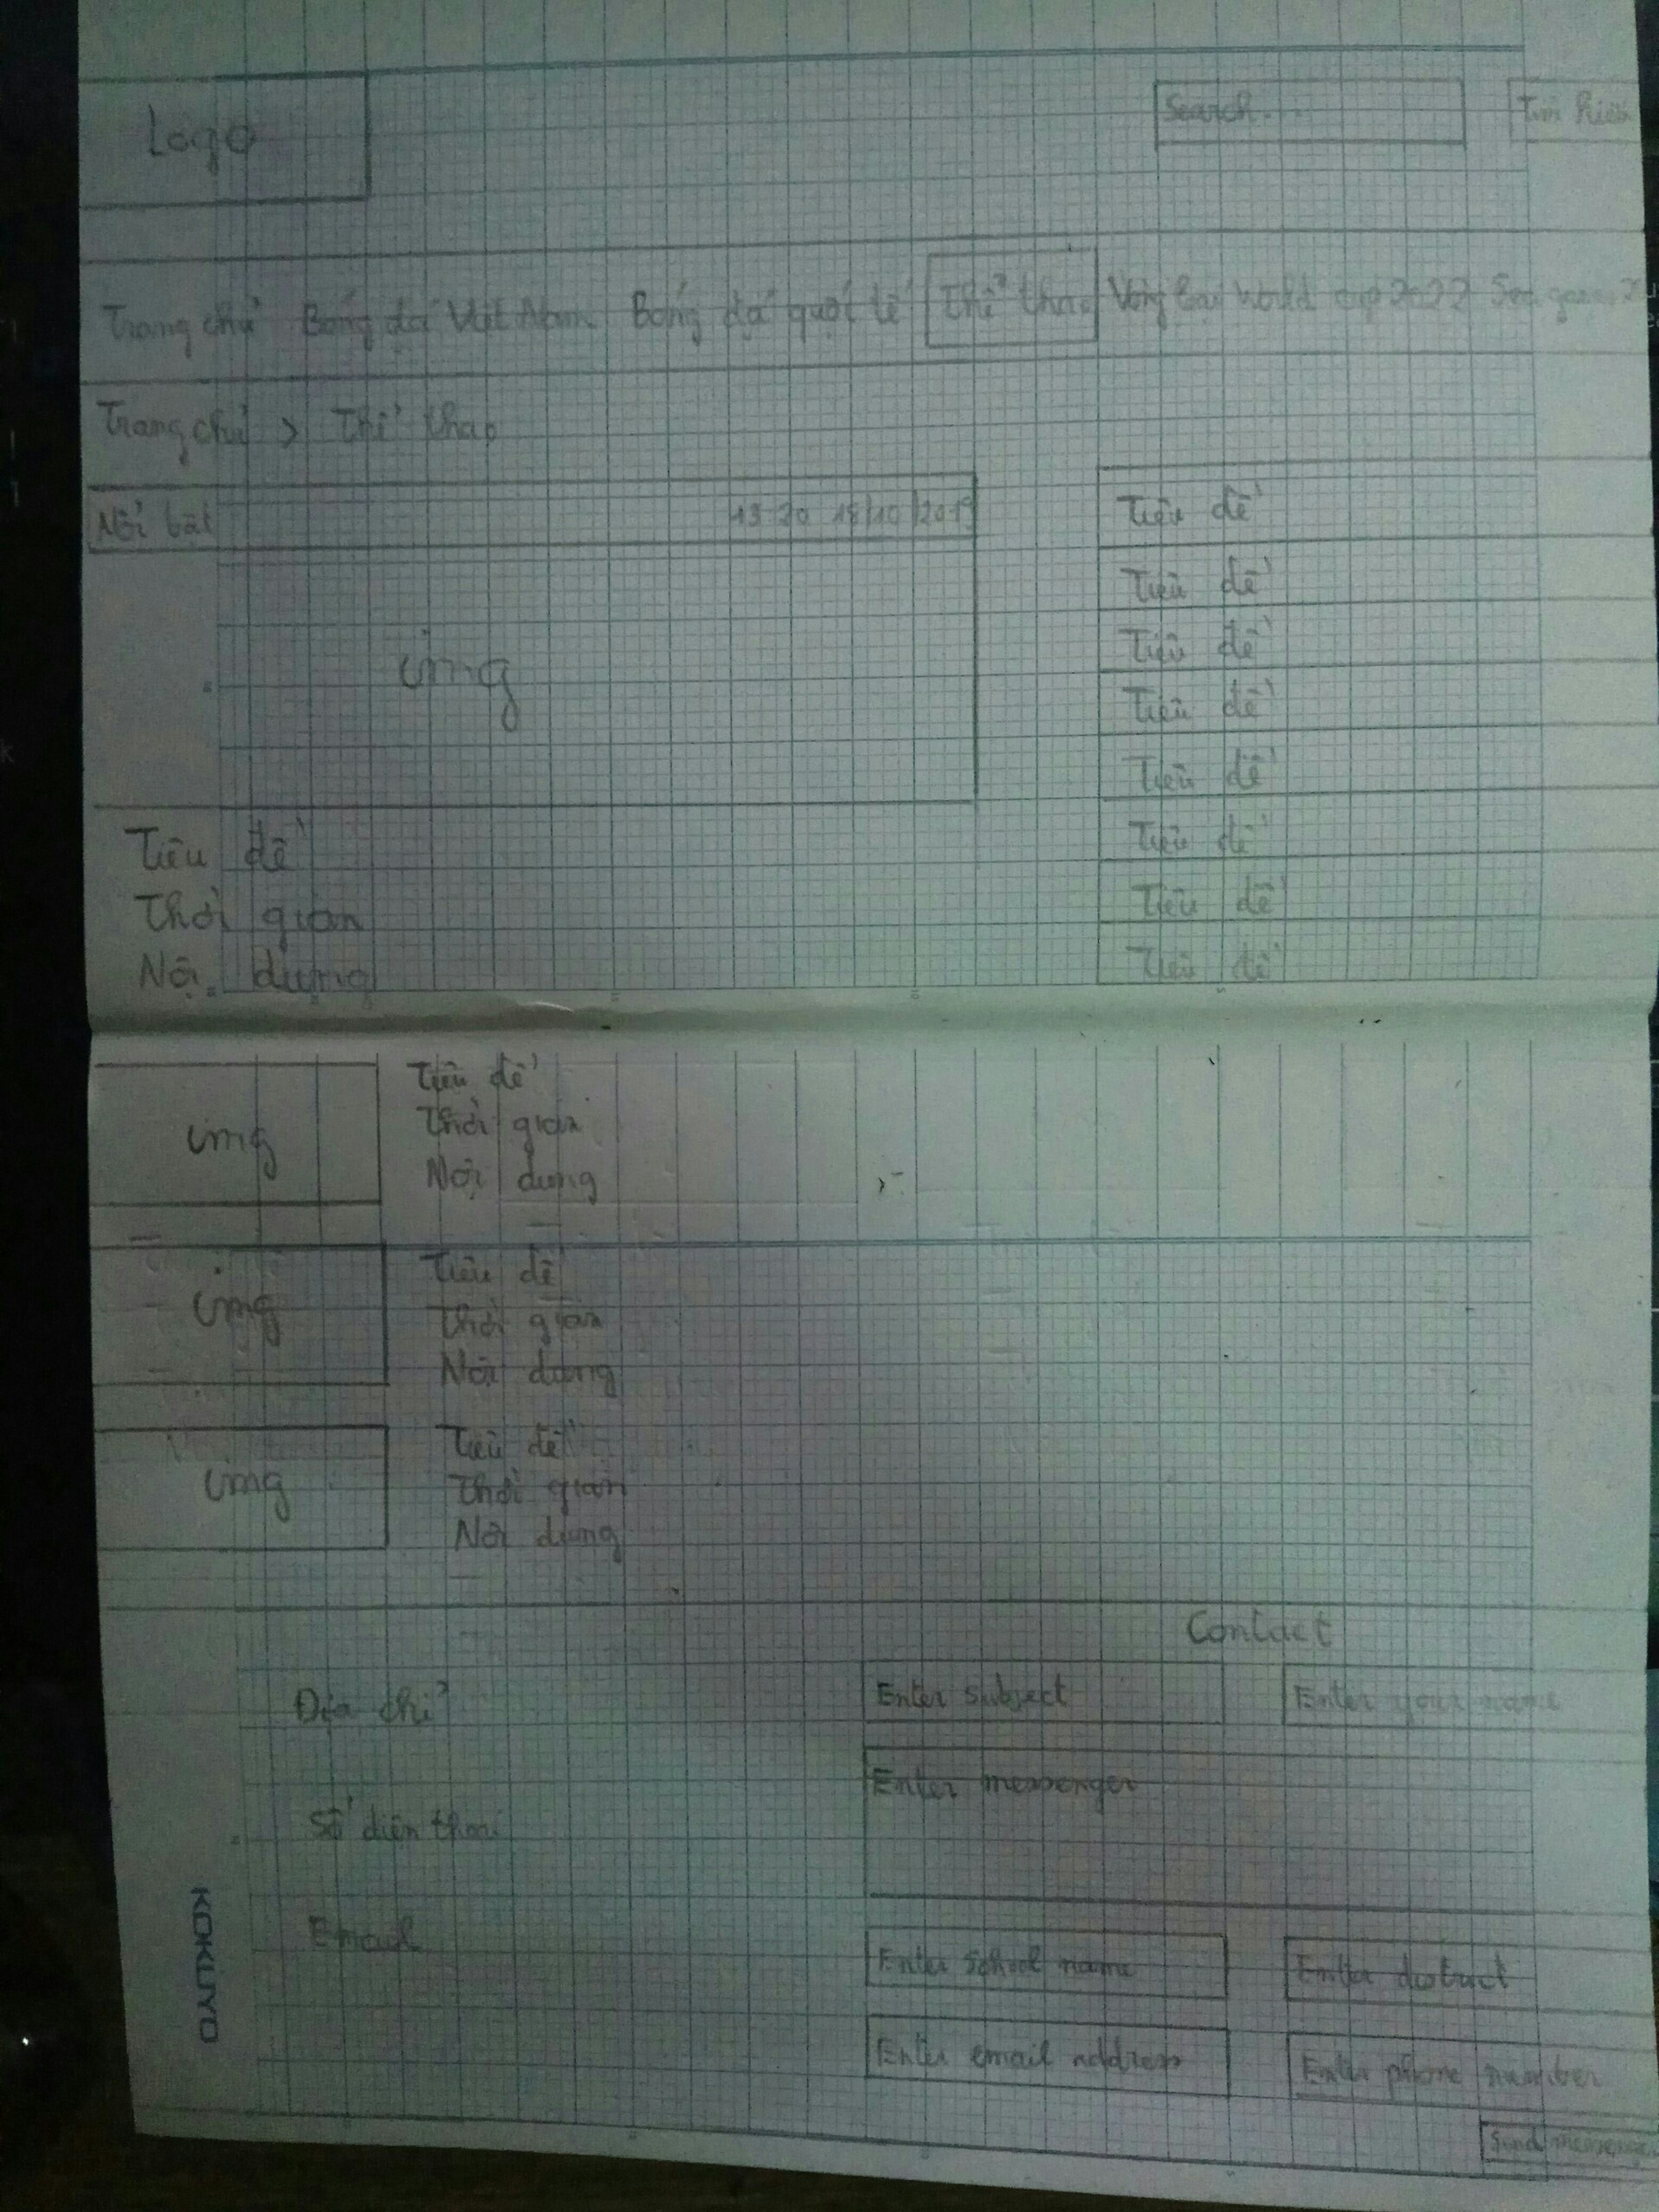 Logo
Search...
Tìm kiếm
Trang chủ Bóng đá Việt Nam Bóng đá quốt tế Thể thao Vòng loại World cup 2022 Sea game
Trang chủ > Thể thao
Nổi bật 18/10/2019
img
Tiêu đề
Tiêu đề
Tiêu đề
Tiêu đề
Tiêu đề
Tiêu đề
Tiêu đề
Tiêu đề
Tiêu đề
Thời gian
Nội dung
img
Tiêu đề
Thời gian
Nội dung
img
Tiêu đề
Thời gian
Nội dung
img
Tiêu đề
Thời gian
Nội dung
Contact
Địa chỉ
Số điện thoại
Email
Enter subject
Enter your name
Enter messenger
Enter school name
Enter district
Enter email address
Enter phone number
Send messenger
KOKUYO